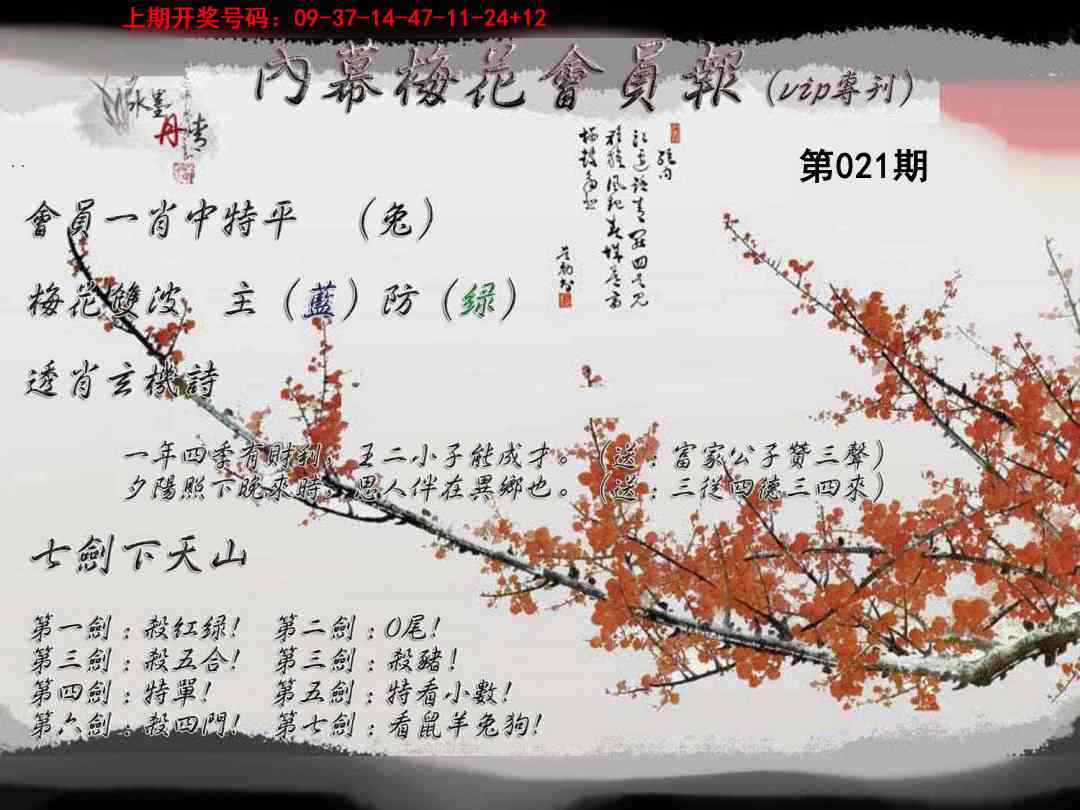 上期开奖号码：09-37-14-47-11-24+12
內幕梅花會員報（vip專刊）
水墨
丹青
第021期
會員一肖中特平　（兔）
梅花雙波　主（藍）防（绿）
透肖玄機詩
一年四季有財利，王二小子能成才。（送：富家公子贊三聲）
夕陽照下晚來時，思人伴在異鄉也。（送：三從四德三四來）
七劍下天山
第一劍：殺紅绿！　第二劍：0尾！
第三劍：殺五合！　第三劍：殺豬！
第四劍：特單！　第五劍：特看小數！
第六劍：殺四門！　第七劍：看鼠羊兔狗！